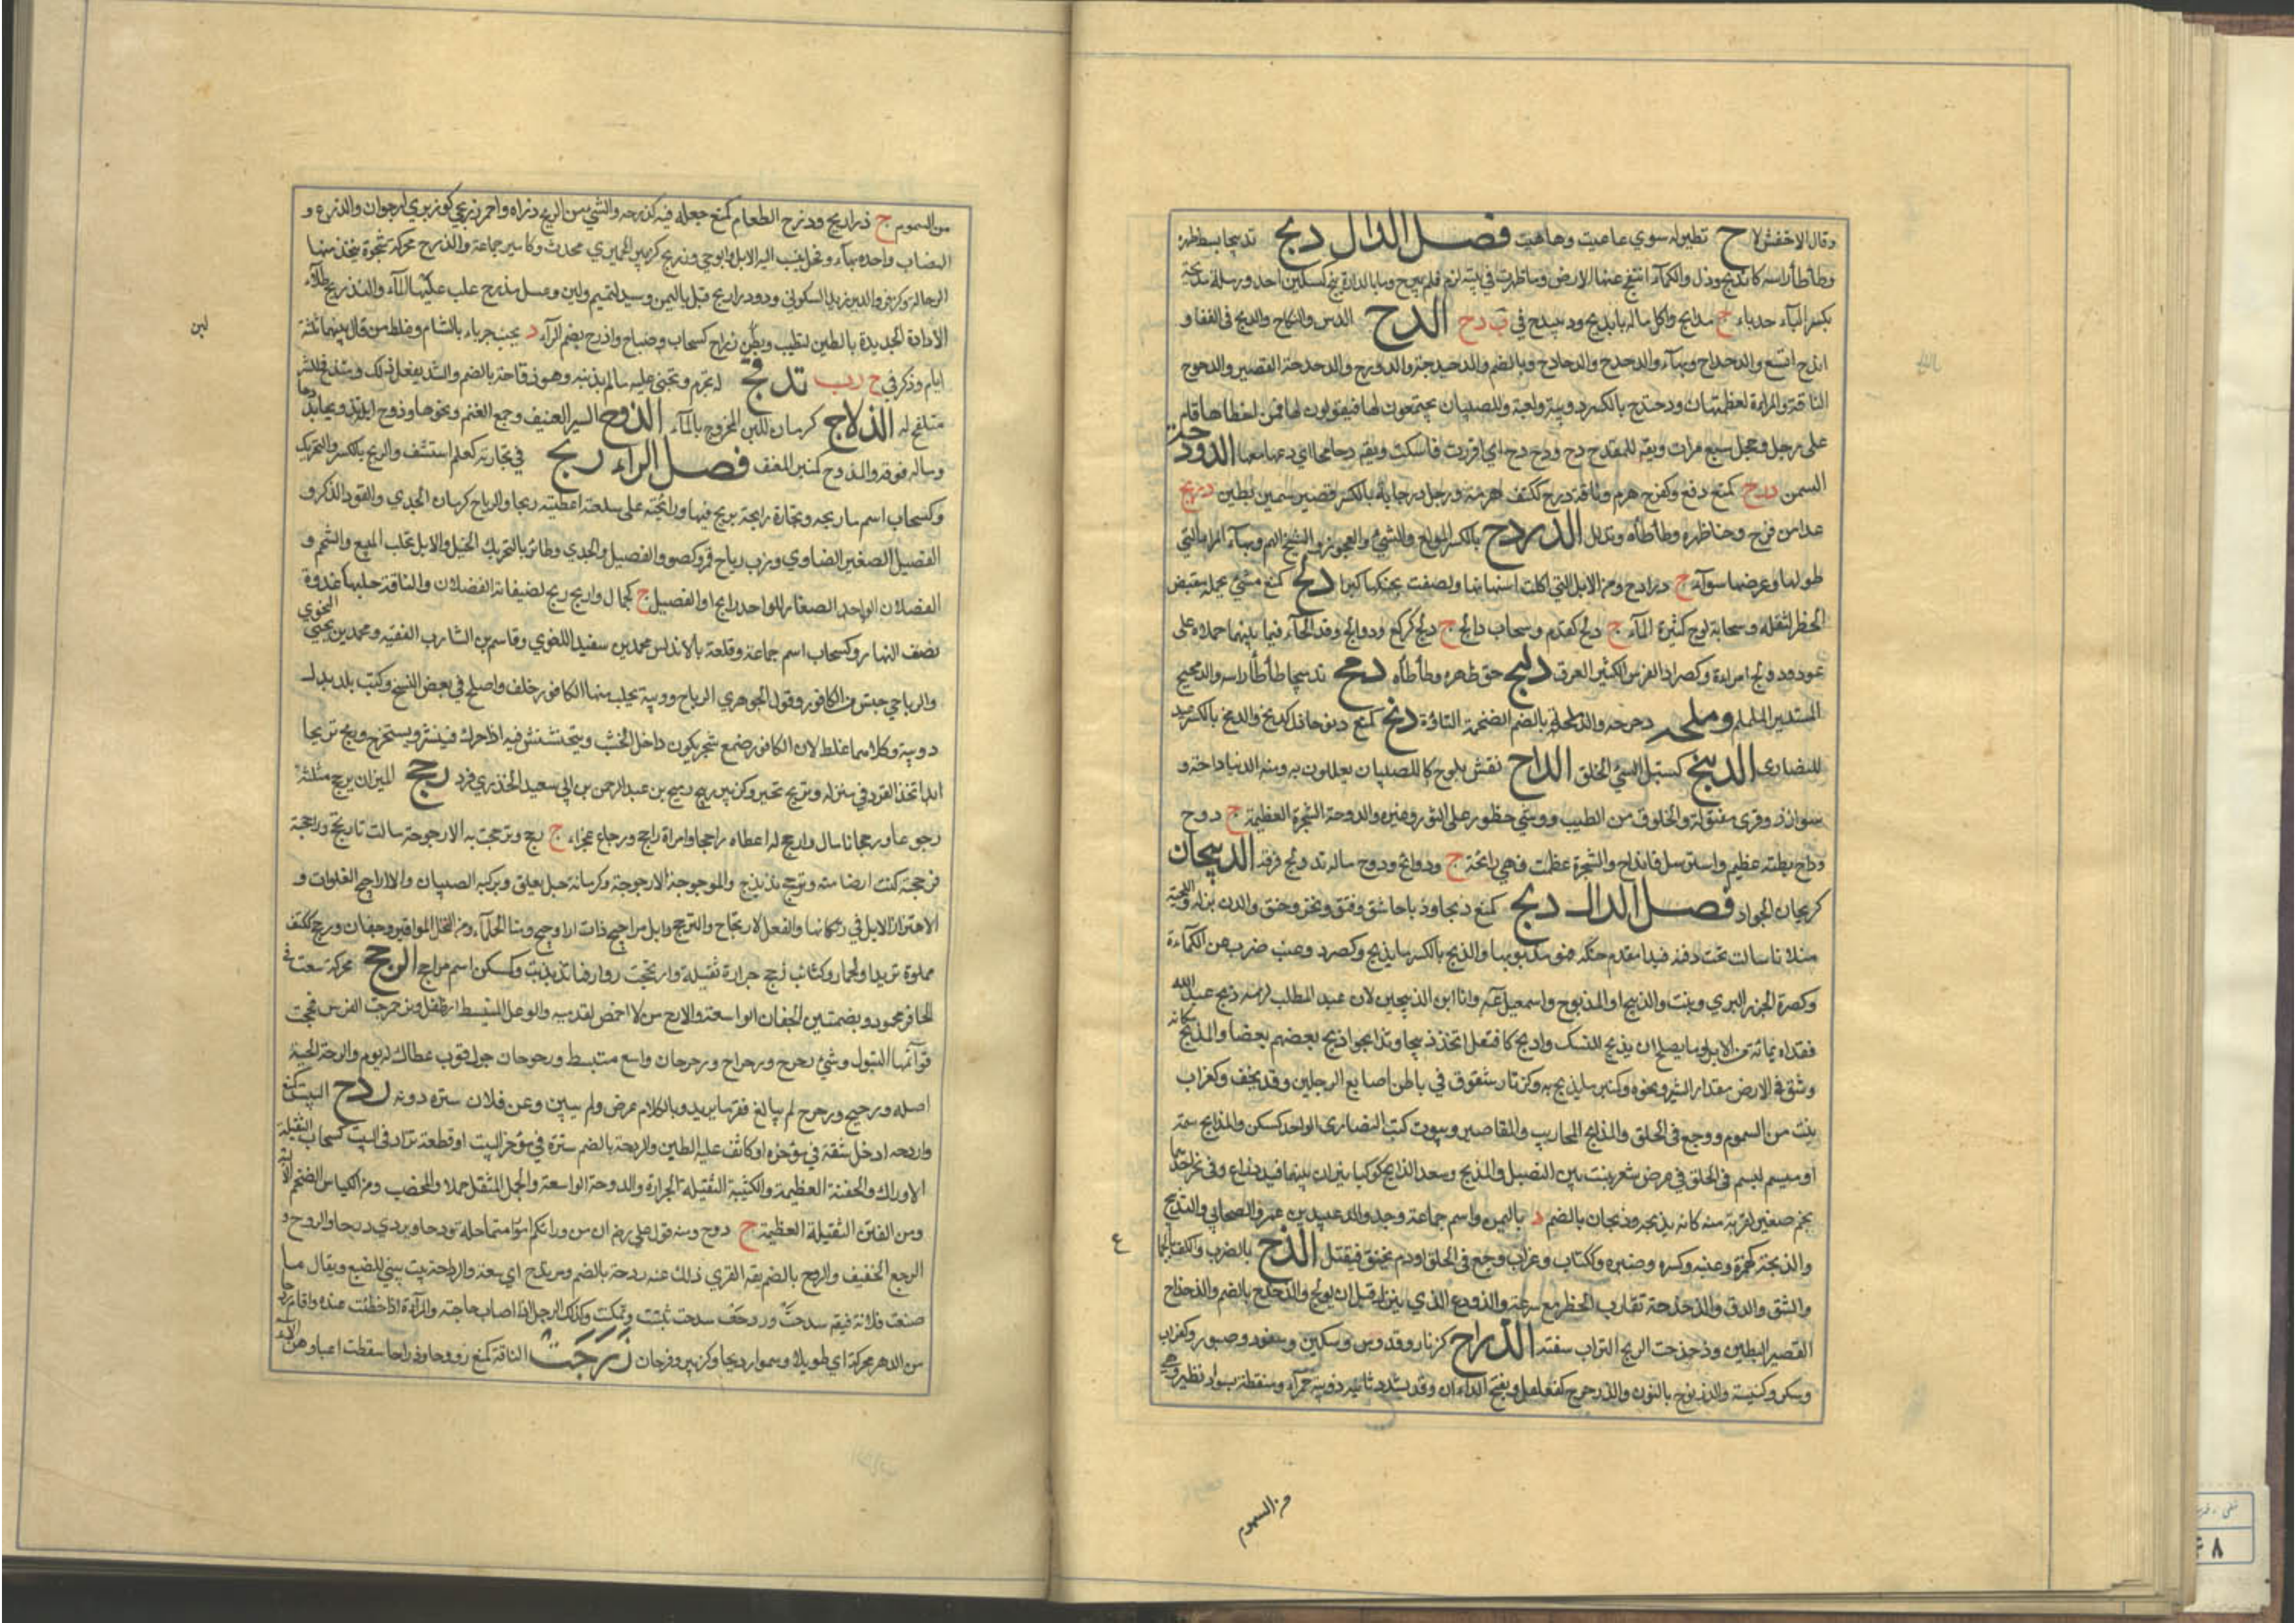 وقال الاخفش لا ح تطيرله سوي عاعيت وهاهيت فصل الدال دبح تدبيحا بسط ظهره
وطأطأ راسه كاندبح وذل والكمأة انتفخ عنها الارض وما ظهرت في بيته لزم فلم يبرح وما بالدار دبيح كسكين احد ورملة مدبحة
بكسر الباء حدباء ج مدابح واكل ماله بابدح ودبيدح في ب د ح الدح الدس والنكاح والدع في القفا و
اندح اتسع والدحداح وبهاء والدحدح والدحادح وبالضم والدحيدحة والدودح والدحدحة القصير والدحوح
الناقة والمراة لعظيمتان ودحندح بالكسر دويبة ولعبة للصبيان يجتمعون لها فيقولون لها فمن اخطاها قام
على رجل وحجل سبع مرات ويقال للمقدح دح ودح دح اي اقررت فاسكت ويقال دحا محا اي دعها معها الدودحة
السمن درح كمنع دفع وكفرح هرم وناقة درح ككتف هرمة ورجل درحاية بالكسر قصير سمين بطين دربح
عدا من فزع وحنا ظهره وطأطأه وتذلل الدردح بالكسر المولع بالشيء والعجوز والشيخ الهم وبهاء المراة التي
طولها وعرضها سواء ج درادح ومن الابل التي اكلت اسنانها ولصقت بحنكها كبرا دلح كمنع مشى بحمله منقبض
الخطو لثقله وسحابة دلوح كثيرة الماء ج دلح كقدم وسحاب دالح ج دلح كركع ودوالح وتدالحاه فيما بينهما حملاه على
عود ودولح امراة وكصرد الفرس الكثير العرق دلبح حنى ظهره وطأطأه دمح تدميحا طأطأ راسه والدمحمح
المستدير الململم ودملحه دحرجه والدملحة بالضم الضخمة التارة دنح كمنع دنوحا ذل كدنح والدنح بالكسر عيد
للنصارى الدنبح كسنبل السيئ الخلق الداح نقش يلوح للصبيان يعللون به ومنه الدنيا داحة و
سوار ذو قوى مفتولة والخلوق من الطيب ووشي وخطوط على الثور وغيره والدوحة الشجرة العظيمة ج دوح
وداح بطنه عظم واسترسل كانداح والشجرة عظمت فهي دائحة ج دوائح ودوح ماله تدويحا فرقه الديحان
كريحان الجراد فصل الذال ذبح كمنع ذبحا وذباحا شق وفتق ونحر وخنق والدن بزله واللحية
فلانا سالت تحت ذقنه فبدا مقدم حنكه فهو مذبوح بها والذبح بالكسر ما يذبح وكصرد وعنب ضرب من الكمأة
وكصرد الجزر البري ونبت والذبيح المذبوح واسمعيل عم وانا ابن الذبيحين لان عبد المطلب لزمه ذبح عبد الله
ففداه بمائة من الابل وما يصلح ان يذبح للنسك واذبح كافتعل اتخذ ذبيحا وتذابحوا ذبح بعضهم بعضا والمذبح مكانه
وشق في الارض مقدار الشبر ونحوه وكمنبر ما يذبح به وكزنار شقوق في باطن اصابع الرجلين وقد يخفف وكغراب
نبت من السموم ووجع في الحلق والمذابح المحاريب والمقاصير وبيوت كتب النصارى الواحد كمسكن والذابح سمة
او ميسم يسم في الحلق في عرض شعر ينبت بين النصيل والمذبح وسعد الذابح كوكبان نيران بينهما قيد ذراع وفي نحر احدهما
نجم صغير لقربه منه كانه يذبحه وذبحان بالضم د باليمن واسم جماعة وجد والد عبيد بن عمرو الصحابي والتذبيح التدبيح
والذبحة كهمزة وعنبة وكسرة وصبرة وكتاب وغراب وجع في الحلق او دم يخنق فيقتل الذح الضرب بالكف والجماع
والشق والدق والذحذحة تقارب الخطو مع سرعة والذوذح الذي ينزل قبل ان يولج والذحذح بالضم والذحذاح
القصير البطين وذحذحت الريح التراب سفته الذراح كزنار وقدوس وسكين وسفود وصبور وغراب
وسكر وكنينة والذرنوح بالنون والذرحرح كفعلعل وبفتح الراءين وقد يشدد ثانيه دويبة حمراء منقطة بسواد تطير وهي
من السموم
ع
من السموم ج ذراريح وذرح الطعام كمنع جعله فيه كذرحه والشيء في الريح ذراه واحمر ذريحي كوزيري ارجوان والذرع و
الهضاب واحده بهاء وفحل ينسب اليه الابل وابو حي وذريح كزبير الحميري محدث وكامير جماعة والذرح محركة شجرة يتخذ منها
الرحالة وكزفر والد يزيد السكوني وذو ذراريح قيل باليمن وسيد لتميم ولبن وعسل مذرح غلب عليهما الماء والتذريح طلاء
الاداوة الجديدة بالطين لتطيب وبطن ذراح كسحاب وضياح واذرح بضم الراء د بجنب جرباء بالشام وغلط من قال بينهما ثلثة
ايام وذكر في ج ر ب تذقح له تجرم وتجنى عليه ما لم يذنبه وهو ذقاحة بالضم والتشديد يفعل ذلك ومتذقح للشر
متلقح له الذلاح كرمان اللبن الممزوج بالماء الذوح السير العنيف وجمع الغنم ونحوها وذوح ابله تذويحا بددها
وماله فرقه والمذوح كمنبر المعنف فصل الراء ربح في تجارته كعلم استشف والربح بالكسر والتحريك
وكسحاب اسم ما ربحه وتجارة رابحة يربح فيها ورابحته على سلعته اعطيته ربحا والرباح كرمان الجدي والقرد الذكر و
الفصيل الصغير الضاوي وزب رباح تمر وكصرد الفصيل والجدي وطائر وبالتحريك الخيل والابل تجلب للبيع والشحم و
الفصلان الصغار الواحد رابح او الفصيل ج كجمال واربح ذبح لضيفانه الفصلان والناقة حلبها غدوة
نصف النهار وكسحاب اسم جماعة وقلعة بالاندلس محمد بن سعيد اللغوي وقاسم بن الشارب الفقيه ومحمد بن يحيى النحوي
والرباحي جنس من الكافور وقول الجوهري الرباح دويبة يجلب منها الكافور خلف واصلح في بعض النسخ وكتب بلد بدل
دويبة وكلاهما غلط لان الكافور صمغ شجر يكون داخل الخشب ويتخشخش فيه اذا حرك فينشر ويستخرج وربح تربيحا
اتخذ القرد في منزله وتربح تحير وكزبير ربيح بن عبد الرحمن بن ابي سعيد الخدري فرد رجح الميزان يرجح مثلثة
رجوحا ورجحانا مال وارجح له اعطاه راجحا وامراة راجح ورجاح عجزاء ج رجح وترجحت به الارجوحة مالت وراجحته
فرجحته كنت ارزن منه وترجح تذبذب والمرجوحة الارجوحة وكرمانة حبل يعلق ويركبه الصبيان والاراجيح الفلوات و
اهتزاز الابل في رتكانها والفعل الارتجاح والترجح وابل مراجيح ذات اراجيح ومنا الحلماء ومن النخل المواقير وجفان رجح ككتب
مملوة ثريدا ولحما وكتائب رجح جرارة ثقيلة وارتجحت روادفها تذبذبت وكمسكن اسم مراجح الرحح محركة سعة في
الحافر محمود وبضمتين الجفان الواسعة والارح من لا اخمص لقدميه والوعل المنبسط الظلف وترحرحت الفرس فحجت
قوائمها لتبول وشيء رحرح ورحراح ورحرحان واسع منبسط ورحرحان جبل قرب عكاظ له يوم والرحة الحية
اصله ورحيح ورحرح لم يبالغ قعر ما يريد وبالكلام عرض ولم يبين وعن فلان ستره دونه ردح البيت كمنع
واردحه ادخل شقة في مؤخره او كاثف عليه الطين والردحة بالضم سترة في مؤخر البيت او قطعة تزاد في البيت كسحاب الثقيلة
الاوراك والجفنة العظيمة والكتيبة الثقيلة الجرارة والدوحة الواسعة والجمل المثقل حملا والمخصب ومن الكباش الضخم الالية
ومن الفتن الثقيلة العظيمة ج ردح ومنه قول علي رض ان من ورائكم امورا متماحلة ردحا ويروى ردحا والردح
الوجع الخفيف والردح بالضم ... ولك عنه ردحة بالضم ومرتدح اي سعة والرداحة بيت يبنى للضبع ويقال ما
صنعت فلانة فيقال سدحت وردحت سدحت ثبتت وتمكنت وكذلك الرجل اذا اصاب حاجته والمراة اذا حظيت عنده واقام ردحا
من الدهر محركة اي طويلا وسموا رديحا وكزبير وفرحان رزحت الناقة كمنع رزوحا ورزاحا سقطت اعياء او هزالا
لبن